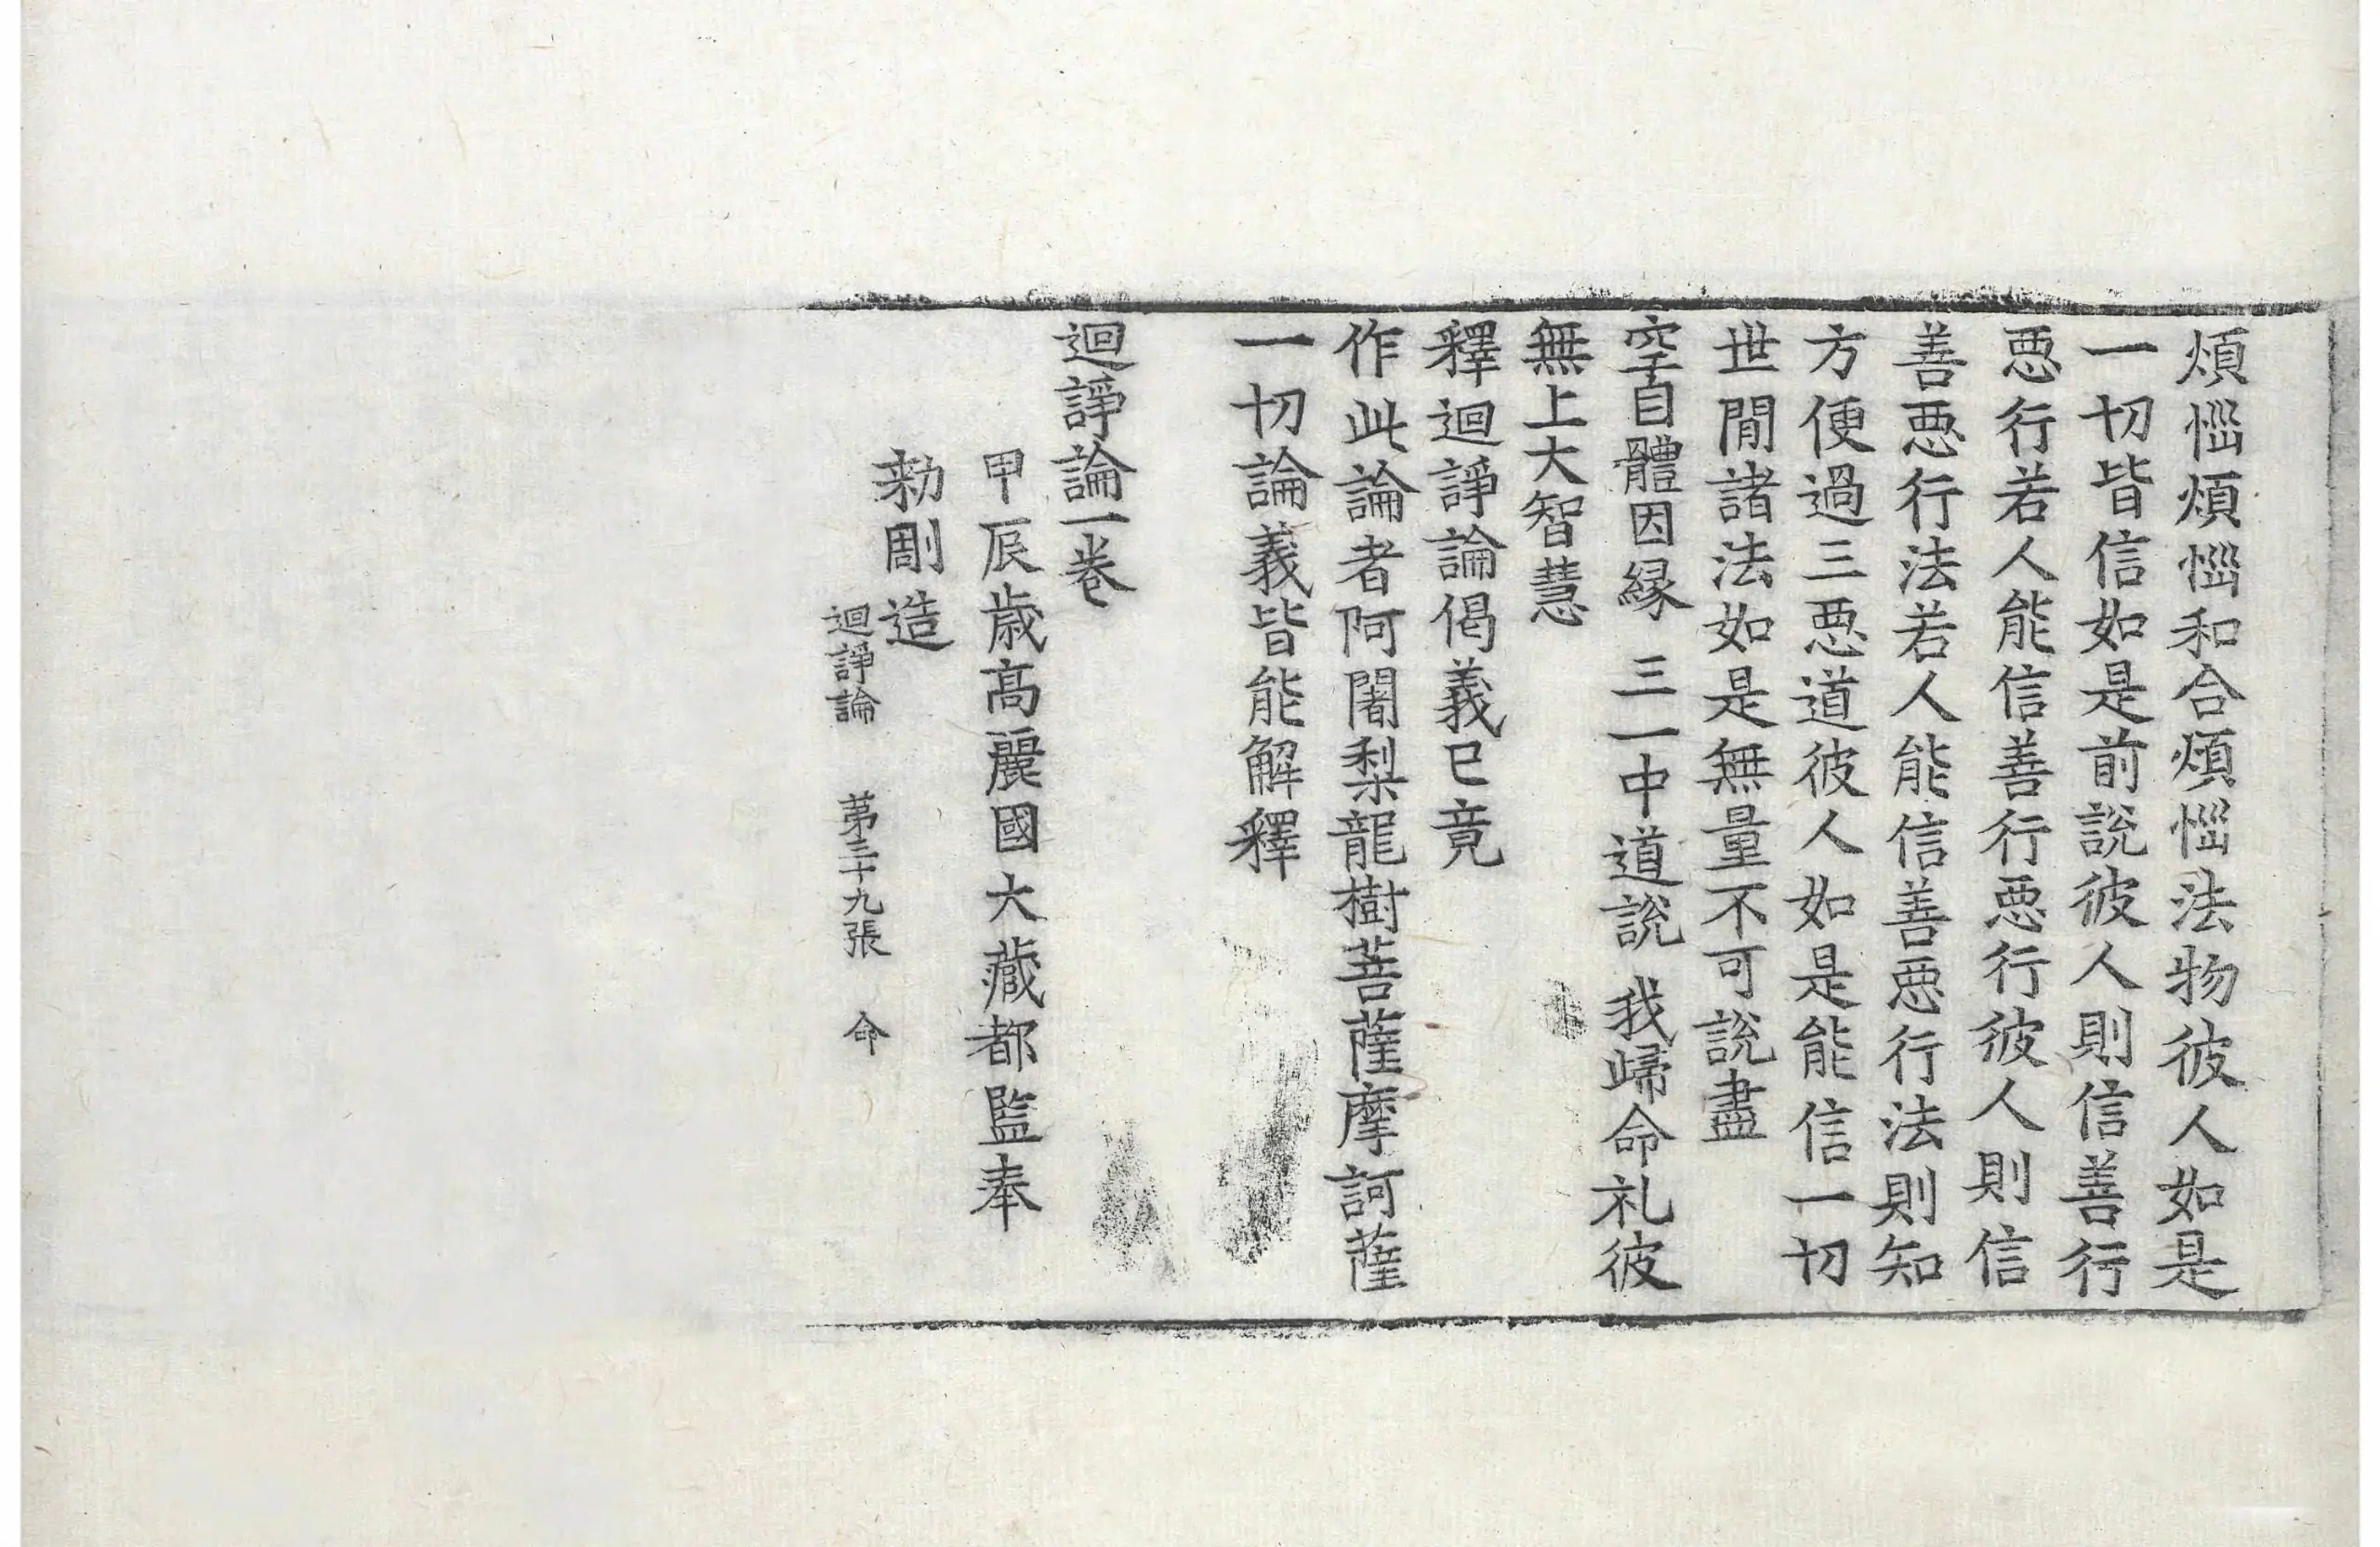 煩惱煩惱和合煩惱法物彼人如是
一切皆信如是前說彼人則信善行
惡行若人能信善行惡行彼人則信
善惡行法若人能信善惡行法則知
方便過三惡道彼人如是能信一切
世閒諸法如是無量不可說盡
空自體因緣 三一中道說 我歸命礼彼
無上大智慧
釋迴諍論偈義已竟
作此論者阿闍梨龍樹菩薩摩訶薩
一切論義皆能解釋
迴諍論一卷
甲辰歲高麗國大藏都監奉
勑彫造
迴諍論 第三十九張 命